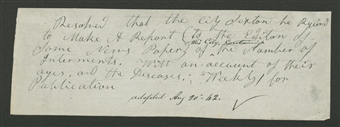 Resolved that the City Sexton be Required
to Make A Report (to the Editor of
the City Gazette
Some News Paper) of the Number of
Interments. With an account of their
ages, and the Diseases. Weekly / for
Publication
adopted Aug 20 42